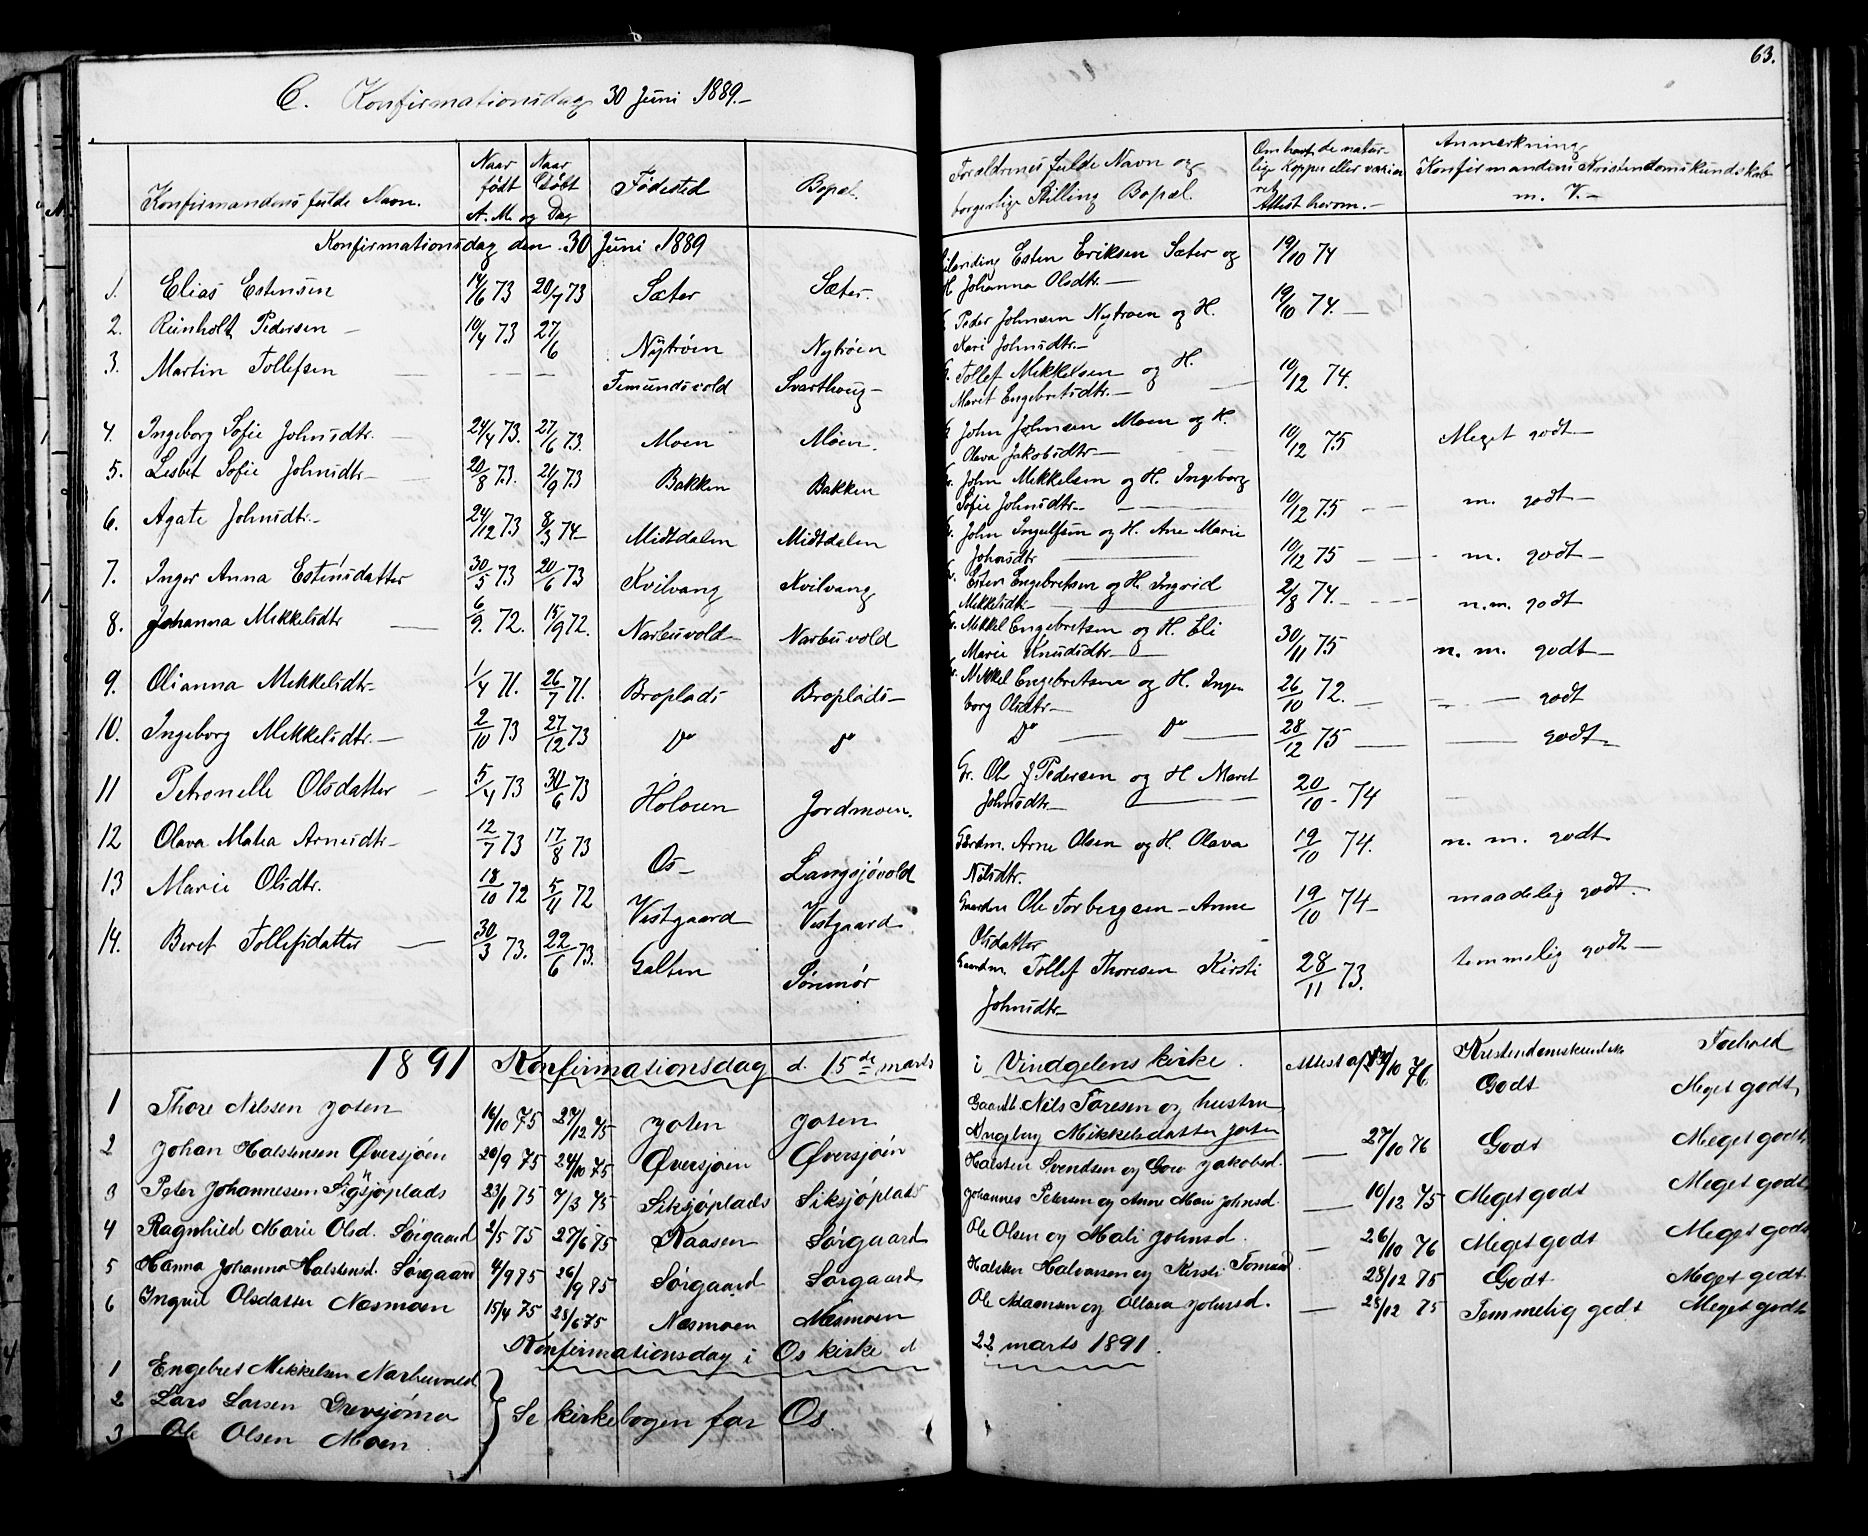 63.
C. Konfirmationsdag 30 Juni 1889.-
Konfirmandens fulde Navn.
Naar født
Naar døbt
A. M. og Dag
Fødested
Bopæl.
Forældrenes fulde Navn og
borgerlige Stilling Bopæl.
Om havt de natur-
lige Kopper eller
Attest herom.-
Anmerkning
Konfirmandens Kristendomskundskab
m. V.-
Konfirmationsdag den 30 Juni 1889
1. Elias Estensen 14/6 73 20/7 73 Sæter Sæter. Esten Eriksen Sæter og 19/10 74
H Johanna Olsdtr.-
2. Reinholt Pedersen - 10/4 73 27/6 Nytrøen Nytrøen Peder Johnsen Nytroen og H. 19/10 74.-
Kari Johnsdtr.-
3. Martin Tollefsen - - - Femundsvold Svarthaug- Tollef Mikkelsen og H. 10/12 74.
Maret Engebretsdtr.-
4. Ingeborg Sofie Johnsdtr. 24/4 73. 27/6 73. Moen Moen. John Johnsen Moen og H. 10/12 75 Meget godt-
Olava Jakobsdtr-
5. Lisbet Sofie Johnsdtr- 20/8 73. 21/9 73 Bakken Bakken John Mikkelsen og H. Ingeborg 10/12 75 - - m. godt-
Sofie Johnsdtr.-
6. Agate Johnsdtr.- 24/12 73 8/3 74- Midtdalen Midtdalen John Ingulfsen og H. Ane Marie 10/12 75 - - m. godt-
Johnsdtr
7. Inger Anna Estensdatter 30/5 73 20/6 73 Kvilvang Kvilvang Esten Engebretsen og H. Ingrid 2/8 74.- - - n.m. godt
Mikkelsdtr-
8. Johanna Mikkelsdtr - 6/9. 72. 15/9 72. Narbuvold- Narbuvold Mikkel Engebretsen og H. Eli 30/11 75 n. m. godt-
Marie Knudsdtr-
9. Olianna Mikkelsdtr- 1/4 71. 26/7 71. Broplads Broplads- Mikkel Engebretsen og H. Inge 26/10 72. - - godt
borg Olsdtr-
10. Ingeborg Mikkelsdtr.- 2/10 73 27/12 73 Do Do Do - Do - 28/12 75 - - godt-
11 Petronelle Olsdatter - 5/4 73 30/6 73 Holøien Jordmoen. Gr. Ole J Pedersen og H Maret 20/10 - 74 -
Johnsdtr-
12 Olava Matea Arnesdtr- 12/7 73 17/8 73 Os- Langsjøvold Gårdm. Arne Olsen og H. Olava 19/10 74. n. m. godt
Nilsdtr.
13 Marie Olsdtr. 18/10 72 5/11 72 Vestgaard Vestgaard Gaardm Ole Torbergsen - Anne 19/10 74- maadelig godt.
Olsdatter
14. Beret Tollefsdatter - 30/3 73. 22/6 73. Galten Sømmør Gaardm. Tollef Thoresen Kirsti 28/11 73. temmelig godt-
Johnsdtr-
1891 Konfirmationsdag d. 15de marts i Vindgelens kirke. Attest af 13/10 76 Kristendomskundsk Forhold
1 Thore Nilssen Joten 16/10 75 27/12 75 Joten Joten Gaardb. Nils Toresen og hustru Godt Meget godt,
Ingebrg Mikkelsdatter Joten
2 Johan Halstensen Øversjøen 20/9 75 24/10 75 Øversjøen Øversjøen Halsten Svendsen og Goro Jakobsd. - 27/10 76 Godt Meget godt,
3 Peter Johannesen Sigsjøplads 23/1 75 7/3 75 Siksjøplads Siksjøplads Johannes Petersen og Anne Mari Johnsd. - 10/12 75 Meget godt Meget godt
4 Ragnhild Marie Olsd. Sørgaard 2/5 75 27/6 75 Kaasen Sørgaard Ole Olsen og Mali Johnsd. - 26/10 76 Meget godt Meget godt
5 Hanna Johanna Halstensd. Sørgaard 4/9 75 26/9 75 Sørgaard Sørgaard Halsten Halvorsen og Kirsti Tomasd 28/12 75 Godt Meget godt
6 Ingrid Olsdatter Næsmoen 15/4 75 25/6 75 Næsmoen Næsmoen Ole Adamsen og Ollava Johnsd. - 28/12 75 Temmelig godt Meget godt
Konfirmationsdag i Os kirke d 22 marts 1891.
1 Engebret Mikkelsen Narbuvold
2 Lars Larsen
3 Ole Olsen Moen
Se kirkebogen for Os.